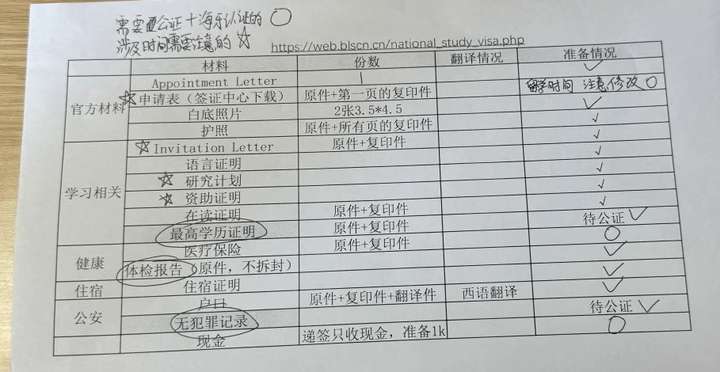 需要公证+海牙认证的 ○
涉及时间需要注意的 ☆
https://web.blscn.cn/national_study_visa.php
材料 份数 翻译情况 准备情况
官方材料
Appointment Letter 1 ✓
☆申请表（签证中心下载） 原件+第一页的复印件 留学时间 注意修改 ○
白底照片 2张3.5*4.5 ✓
护照 原件+所有页的复印件 ✓
学习相关
☆Invitation Letter 原件+复印件 ✓
语言证明 ✓
☆ 研究计划 ✓
☆ 资助证明 ✓
在读证明 原件+复印件 ✓
最高学历证明 原件+复印件 待公证 ✓
健康
医疗保险 原件+复印件 ○
体检报告（原件，不拆封） ✓
住宿
住宿证明 ✓
公安
户口 原件+复印件+翻译件 西语翻译 ✓
无犯罪记录 待公证 ✓
现金 递签只收现金，准备1k ○